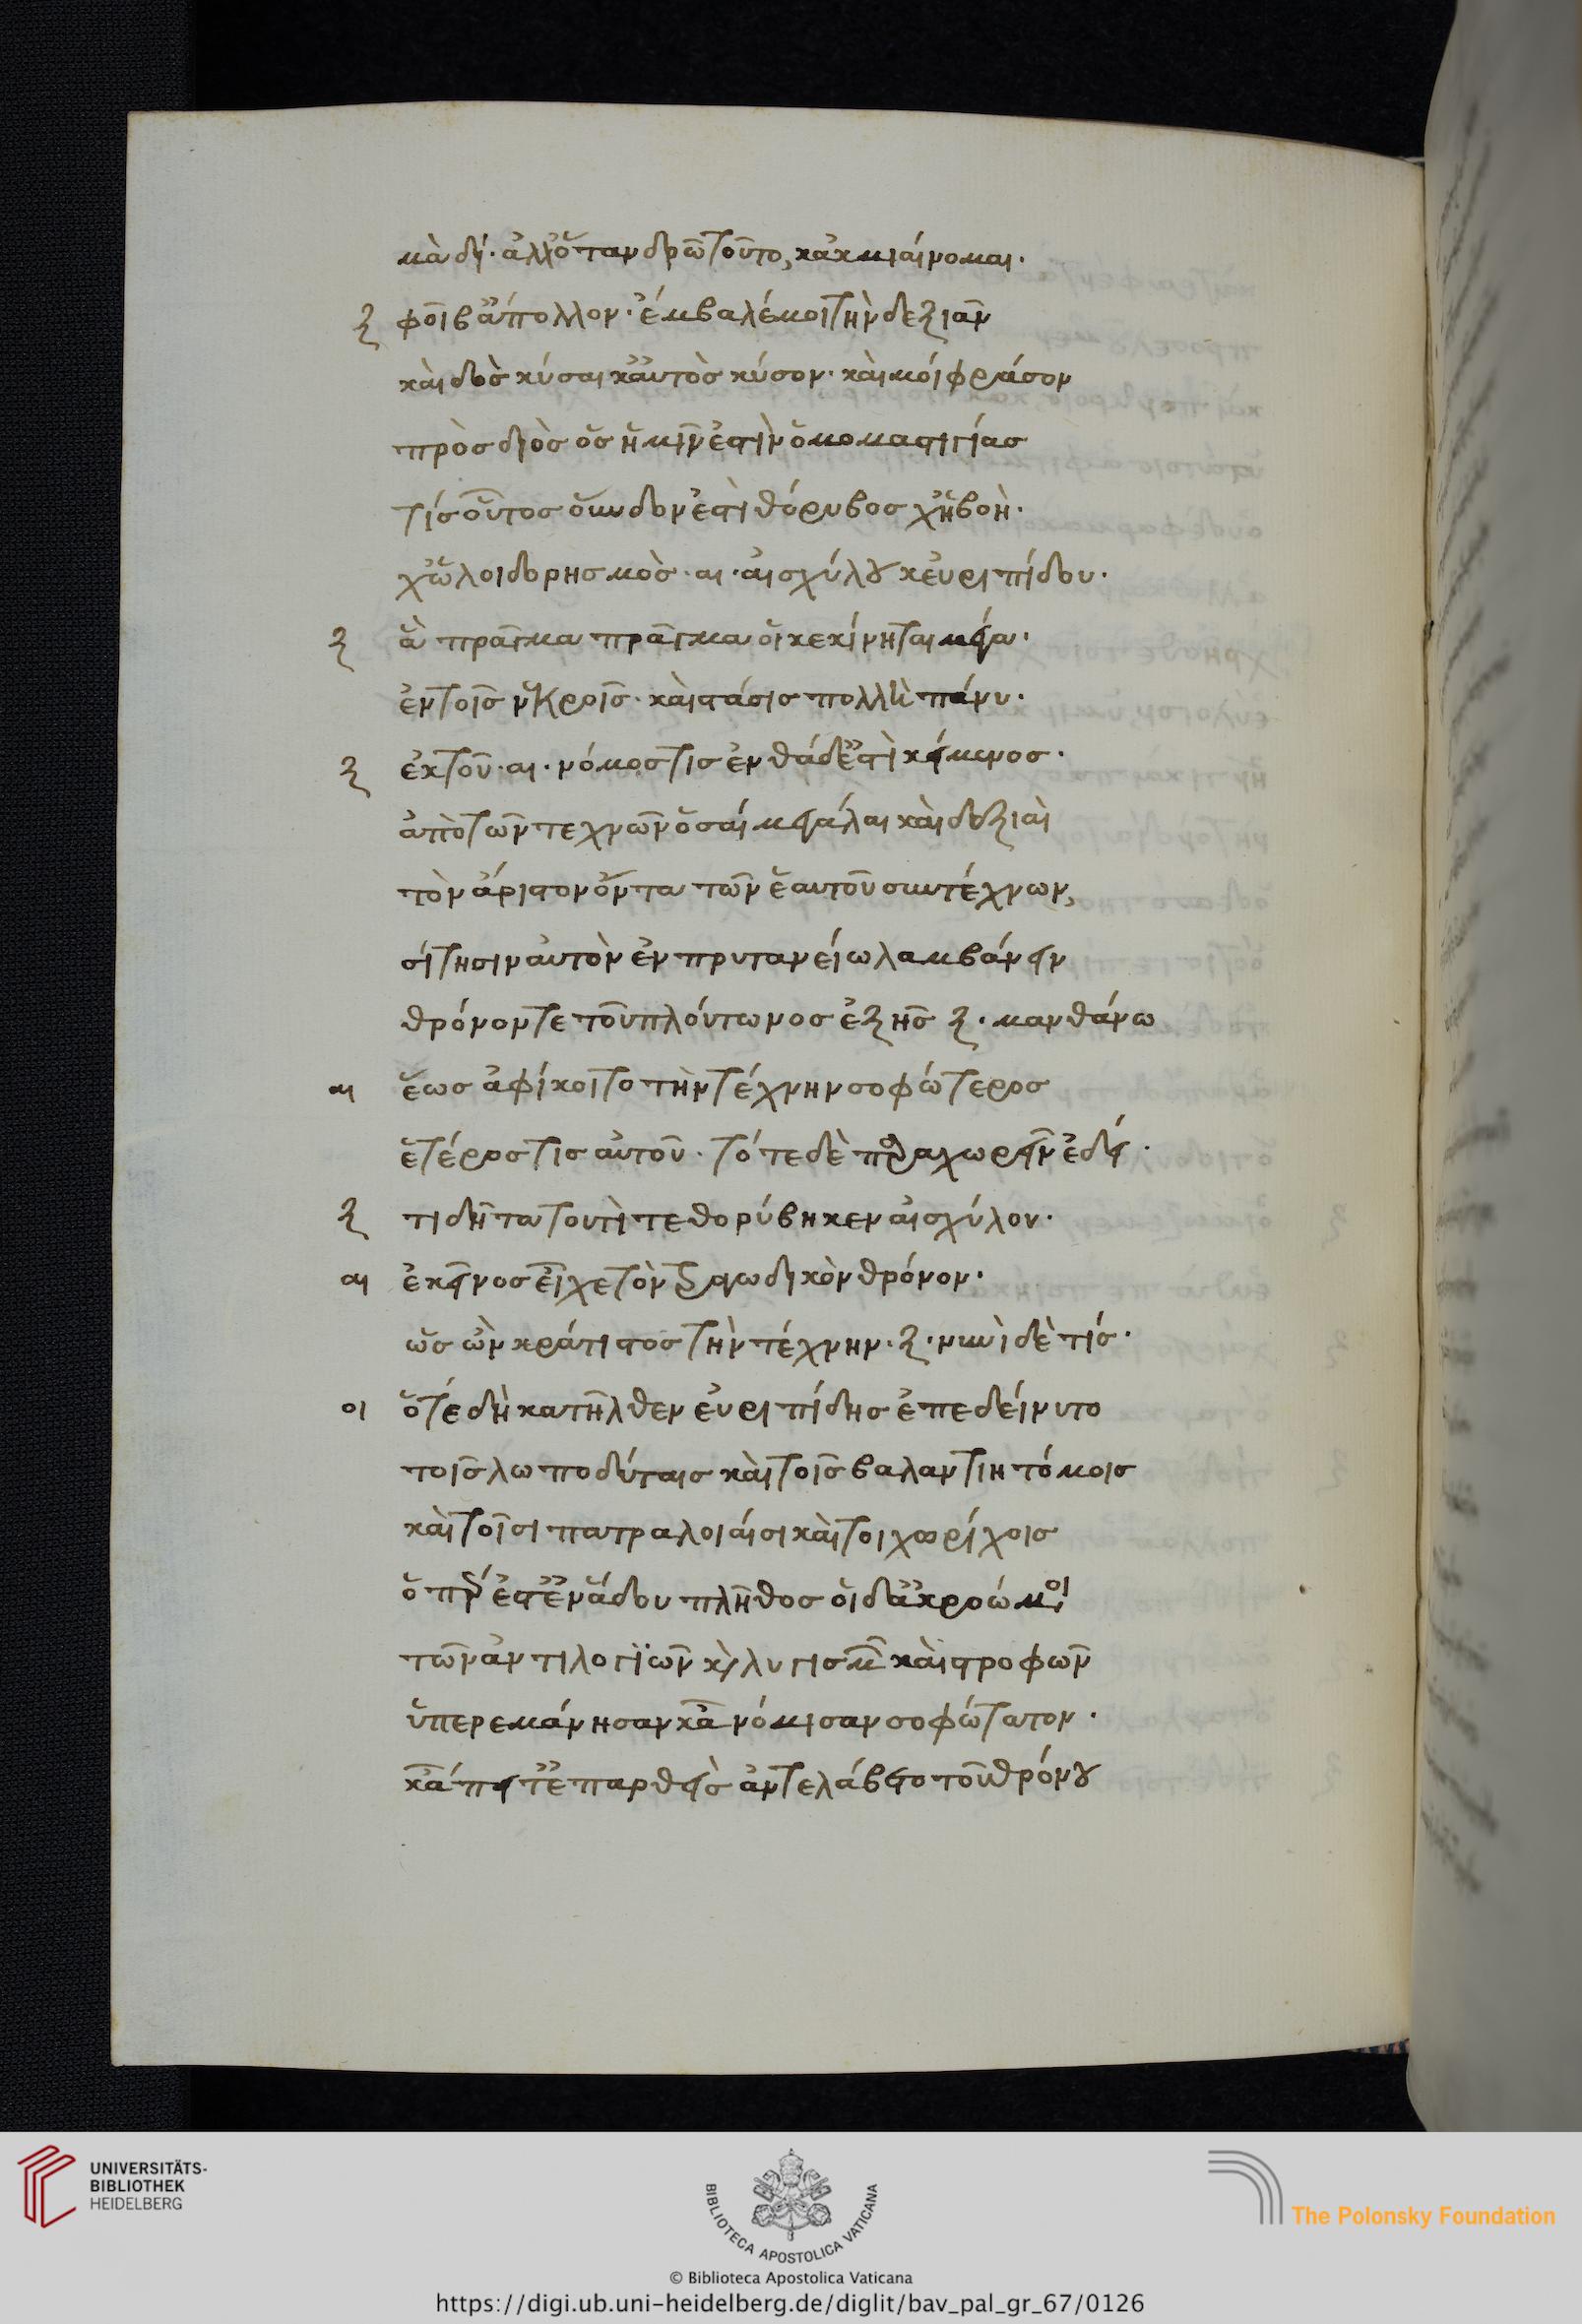 μὰ δί· ἀλλ' ὅταν δρῶ τοῦτο, κἀκμιαίνομαι.
ξ φοῖβ' ἄπολλον· ἔμβαλέ μοι τὴν δεξιὰν
καὶ δὸσ κύσαι καὐτὸσ κύσον· καί μοι φράσον
πρὸσ διὸσ ὃσ ἡμῖν ἐστὶν ὁμομαστιγίασ
τίσ οὗτοσ οὕνδον ἐστὶ θόρυβοσ χἡ βοὴ·
χὠ λοιδορησμὸσ· αι· αἰσχύλου κεὐριπίδου·
ξ ἃ πρᾶγμα πρᾶγμα οἱ κεκίνηται μέγα·
ἐν τοῖσ νεκροῖσ· καὶ στάσισ πολλὴ πάνυ·
ξ ἐκ τοῦ· αι· νόμοσ τισ ἐνθάδ' ἐστὶ κείμενοσ·
ἀπὸ τῶν τεχνῶν ὅσαι μεγάλαι καὶ δεξιαὶ
τὸν ἄριστον ὄντα τῶν ἑαυτοῦ συντέχνων,
σίτησιν αὐτὸν ἐν πρυτανείω λαμβάνειν
θρόνον τε τοῦ πλούτωνοσ ἑξῆσ ξ· μανθάνω
αι ἕωσ ἀφίκοιτο τὴν τέχνην σοφώτεροσ
ἑτέροσ τισ αὐτοῦ· τότε δὲ παραχωρεῖν ἔδει·
ξ τί δῆτα τουτὶ τεθορύβηκεν αἰσχύλον·
αι ἐκεῖνοσ εἶχε τὸν τραγωδικὸν θρόνον·
ὡσ ὢν κράτιστοσ τὴν τέχνην· ξ· νυνὶ δὲ τίσ·
οι ὅτε δὴ κατῆλθεν εὐριπίδησ ἐπεδείνυτο
τοῖσ λωποδύταισ καὶ τοῖσ βαλαντιητόμοισ
καὶ τοῖσι πατραλοιαίσι καὶ τοιχωρίχοισ
ὅπερ ἔστ' ἐν ἅδου πλῆθοσ οἱ δ' ἀκροώμενοι
τῶν ἀντιλογιῶν καὶ λυγισμῶν καὶ στροφῶν
ὑπερεμάνησαν κἀνόμισαν σοφώτατον·
κἄπειτ' ἐπαρθεὶσ ἀντελάβετο τοῦ θρόνου
UNIVERSITÄTS-
BIBLIOTHEK
HEIDELBERG
BIBLIOTECA APOSTOLICA VATICANA
The Polonsky Foundation
© Biblioteca Apostolica Vaticana
https://digi.ub.uni-heidelberg.de/diglit/bav_pal_gr_67/0126